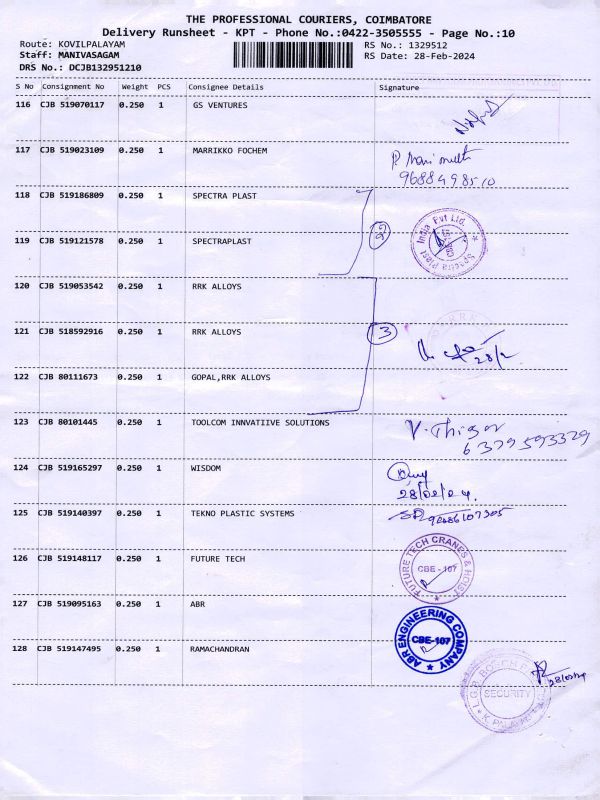 THE PROFESSIONAL COURIERS, COIMBATORE
Delivery Runsheet - KPT - Phone No.:0422-3505555 - Page No.:10
Route: KOVILPALAYAM RS No.: 1329512
Staff: MANIVASAGAM RS Date: 28-Feb-2024
DRS No.: DCJB132951210
S No Consignment No Weight PCS Consignee Details Signature
116 CJB 519070117 0.250 1 GS VENTURES
117 CJB 519023109 0.250 1 MARRIKKO FOCHEM P. Mari muth
9688498510
118 CJB 519186809 0.250 1 SPECTRA PLAST
Spectra Plast India Pvt Ltd.
119 CJB 519121578 0.250 1 SPECTRAPLAST
120 CJB 519053542 0.250 1 RRK ALLOYS
121 CJB 518592916 0.250 1 RRK ALLOYS 3
28/2
122 CJB 80111673 0.250 1 GOPAL,RRK ALLOYS
123 CJB 80101445 0.250 1 TOOLCOM INNVATIIVE SOLUTIONS V. Thigar
6379593329
124 CJB 519165297 0.250 1 WISDOM
28/02/24.
125 CJB 519140397 0.250 1 TEKNO PLASTIC SYSTEMS
126 CJB 519148117 0.250 1 FUTURE TECH FUTURE TECH CRANES & HOIST CBE - 107
127 CJB 519095163 0.250 1 ABR ABR ENGINEERING COMPANY CBE-107
128 CJB 519147495 0.250 1 RAMACHANDRAN
SECURITY